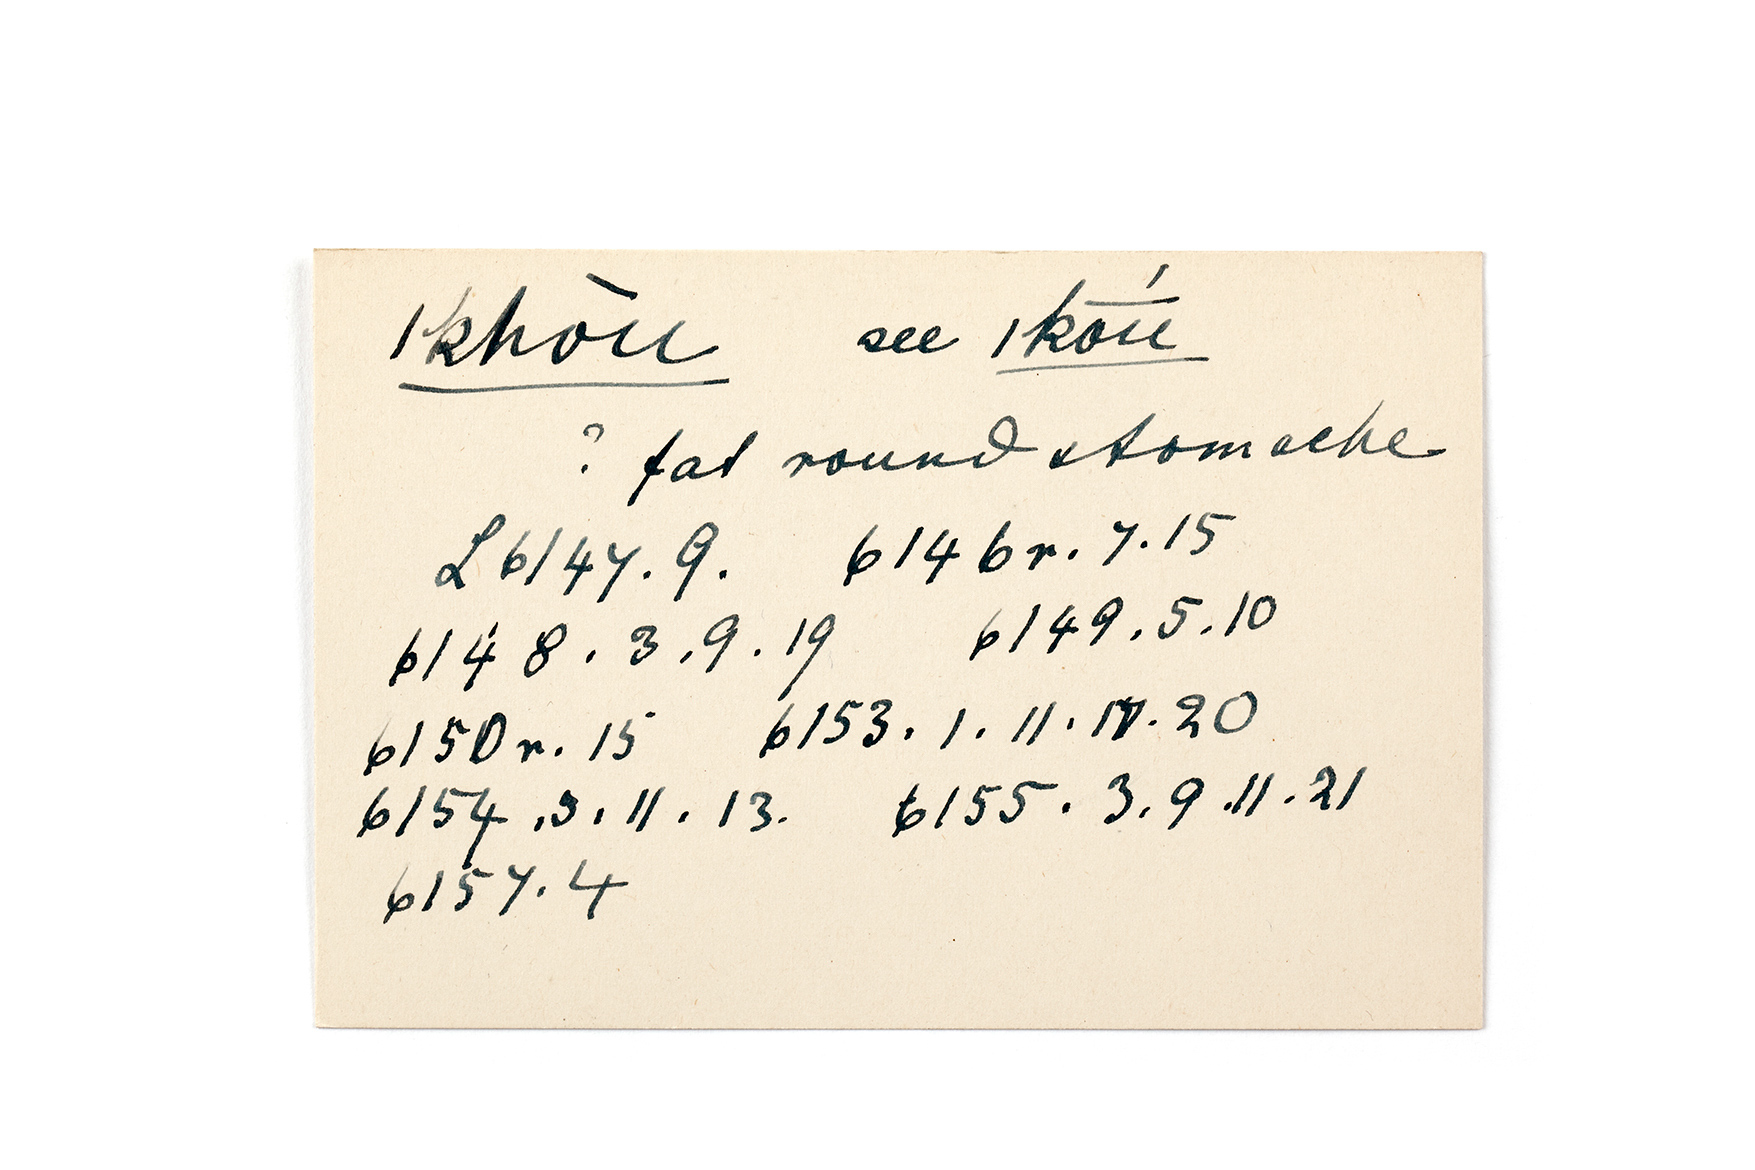 ǀkhòu see ǀkṓú
? fat round stomache
L 6147. 9. 6146r. 7. 15
6148. 3. 9. 19 6149. 5. 10
6150r. 15 6153. 1. 11. 17. 20
6154. 3. 11. 13. 6155. 3. 9. 11. 21
6157. 4